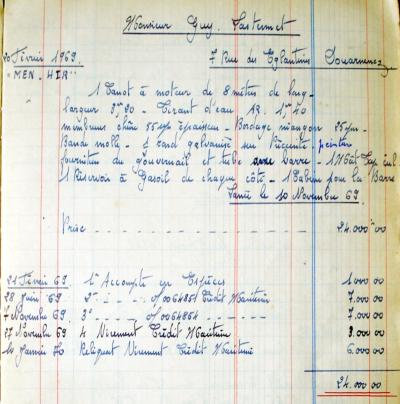 Monsieur Guy Pasternet
20 Février 1969. 7 Rue des Eglantines Douarnenez
"MEN-HIR"
1 Canot à moteur de 8 mètres de long
largeur 3,m20 - Tirant d'eau AR. 1,m40
membrures chêne 55 épaisseur - Bordage niangon 25
rond galvanisé sur Préceinte peinture
fourniture du gouvernail et tube barre - 1 Mât Tape cul
1 Réservoir à Gasoil de chaque côté - 1 Cabine pour la Barre
Lancé le 10 Novembre 69
Prise - - - - - 24.000 "00
21 Février 69. 1er Accompte en Espèces 1.000 00
28 Juin 69 2e - - 0/0064851 Crédit Maritime 7.000 00
7 Novembre 69 3e - - - 0/0064864 - - - - 7.000 00
27 Novembre 69 4 Virement Crédit Maritime 3.000 00
Janvier 70 Reliquat Virement Crédit Maritime 6.000 00
24.000 00